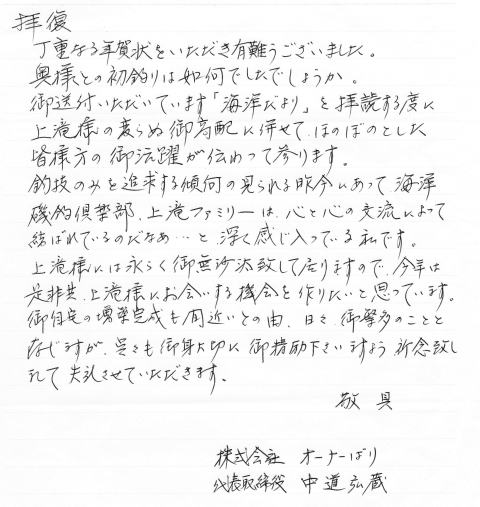 拝復
丁重なる年賀状をいただき有難うございました。
奥様との初釣りは如何でしたでしょうか。
御送付いただいています「海洋だより」を拝読する度に
上滝様の変らぬ御高配に併せて、ほのぼのとした
皆様方の御活躍が伝わって参ります。
釣技のみを追求する傾向の見られる昨今にあって 海洋
磯釣倶楽部、上滝ファミリーは、心と心の交流によって
結ばれているのだなあ…と 深く感じ入っている私です。
上滝様には永らく御無沙汰致して居りますので、今年は
是非共、上滝様にお会いする機会を作りたいと思っています。
御自宅の増築完成も間近いとの由、日々、御繁多のことと
存じますが、呉々も御身大切に御精励下さいますよう祈念致し
まして 失礼させていただきます。
敬具
株式会社 オーナーばり
代表取締役 中道弘蔵